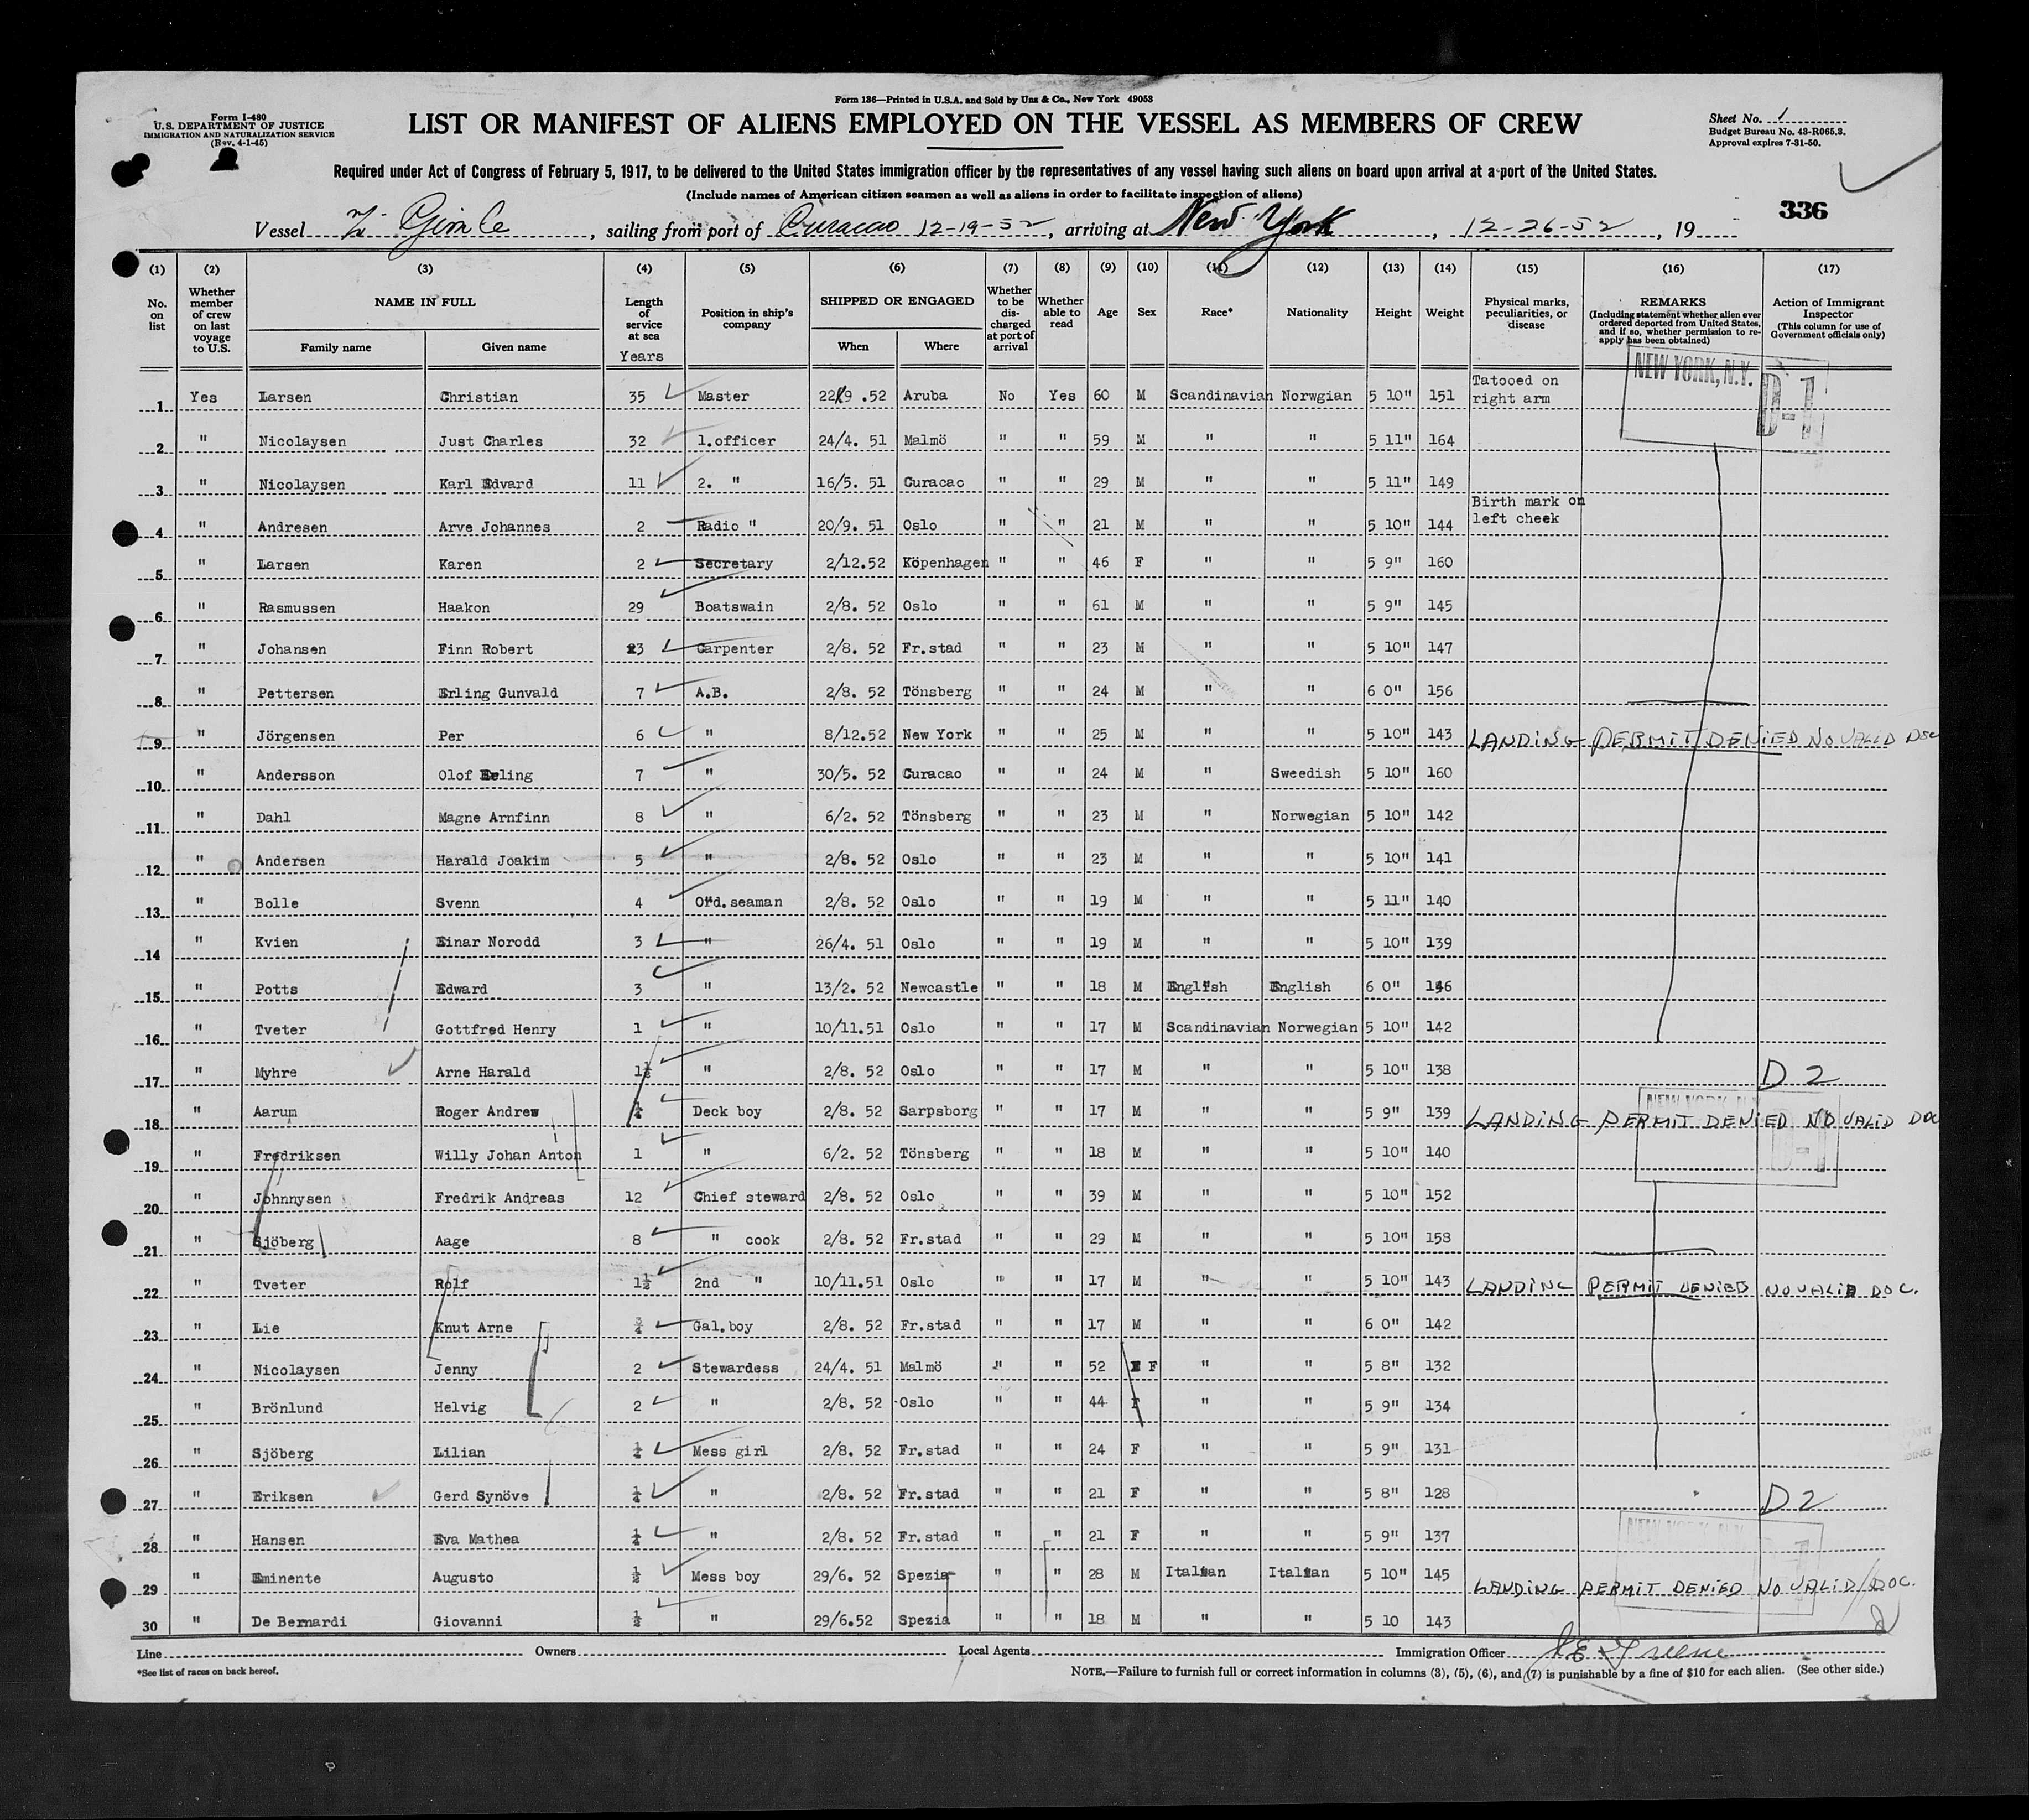 Form 136—Printed in U.S.A. and Sold by Unz & Co., New York 49053
Form I-480
U.S. DEPARTMENT OF JUSTICE
IMMIGRATION AND NATURALIZATION SERVICE
(Rev. 4-1-45)
LIST OR MANIFEST OF ALIENS EMPLOYED ON THE VESSEL AS MEMBERS OF CREW
Sheet No. 1
Budget Bureau No. 43-R065.3.
Approval expires 7-31-50.
Required under Act of Congress of February 5, 1917, to be delivered to the United States immigration officer by the representatives of any vessel having such aliens on board upon arrival at a port of the United States.
(Include names of American citizen seamen as well as aliens in order to facilitate inspection of aliens)
336
Vessel Gimle, sailing from port of Curacao 12-19-52, arriving at New York, 12-26-52, 19
(1) (2) (3) (4) (5) (6) (7) (8) (9) (10) (11) (12) (13) (14) (15) (16) (17)
No. on list
Whether member of crew on last voyage to U.S.
NAME IN FULL
Family name Given name
Length of service at sea
Years
Position in ship's company
SHIPPED OR ENGAGED
When Where
Whether to be discharged at port of arrival
Whether able to read
Age Sex Race* Nationality Height Weight
Physical marks, peculiarities, or disease
REMARKS
(Including statement whether alien ever ordered deported from United States, and if so, whether permission to reapply has been obtained)
Action of Immigrant Inspector
(This column for use of Government officials only)
NEW YORK, N.Y. D-1
1 Yes Larsen Christian 35 Master 22/9 .52 Aruba No Yes 60 M Scandinavian Norwgian 5 10" 151 Tatooed on right arm
2 " Nicolaysen Just Charles 32 1.officer 24/4. 51 Malmö " " 59 M " " 5 11" 164
3 " Nicolaysen Karl Edvard 11 2. " 16/5. 51 Curacao " " 29 M " " 5 11" 149
4 " Andresen Arve Johannes 2 Radio " 20/9. 51 Oslo " " 21 M " " 5 10" 144 Birth mark on left cheek
5 " Larsen Karen 2 Secretary 2/12.52 Köpenhagen " " 46 F " " 5 9" 160
6 " Rasmussen Haakon 29 Boatswain 2/8. 52 Oslo " " 61 M " " 5 9" 145
7 " Johansen Finn Robert 23 Carpenter 2/8. 52 Fr.stad " " 23 M " " 5 10" 147
8 " Pettersen Erling Gunvald 7 A.B. 2/8. 52 Tönsberg " " 24 M " " 6 0" 156
9 " Jörgensen Per 6 " 8/12.52 New York " " 25 M " " 5 10" 143 LANDING PERMIT DENIED NO VALID DOC
10 " Andersson Olof Erling 7 " 30/5. 52 Curacao " " 24 M " Sweedish 5 10" 160
11 " Dahl Magne Arnfinn 8 " 6/2. 52 Tönsberg " " 23 M " Norwegian 5 10" 142
12 " Andersen Harald Joakim 5 " 2/8. 52 Oslo " " 23 M " " 5 10" 141
13 " Bolle Svenn 4 Ord.seaman 2/8. 52 Oslo " " 19 M " " 5 11" 140
14 " Kvien Einar Norodd 3 " 26/4. 51 Oslo " " 19 M " " 5 10" 139
15 " Potts Edward 3 " 13/2. 52 Newcastle " " 18 M English English 6 0" 146
16 " Tveter Gottfred Henry 1 " 10/11.51 Oslo " " 17 M Scandinavian Norwegian 5 10" 142
17 " Myhre Arne Harald 1½ " 2/8. 52 Oslo " " 17 M " " 5 10" 138 D 2
NEW YORK, N.Y. D-1
18 " Aarum Roger Andrew Deck boy 2/8. 52 Sarpsborg " " 17 M " " 5 9" 139 LANDING PERMIT DENIED NO VALID DOC
19 " Fredriksen Willy Johan Anton 1 " 6/2. 52 Tönsberg " " 18 M " " 5 10" 140
20 " Johnnysen Fredrik Andreas 12 Chief steward 2/8. 52 Oslo " " 39 M " " 5 10" 152
21 " Sjöberg Aage 8 " cook 2/8. 52 Fr.stad " " 29 M " " 5 10" 158
22 " Tveter Rolf 1½ 2nd " 10/11.51 Oslo " " 17 M " " 5 10" 143 LANDING PERMIT DENIED NO VALID DOC.
23 " Lie Knut Arne ¾ Gal.boy 2/8. 52 Fr.stad " " 17 M " " 6 0" 142
24 " Nicolaysen Jenny 2 Stewardess 24/4. 51 Malmö " " 52 F " " 5 8" 132
25 " Brönlund Helvig 2 " 2/8. 52 Oslo " " 44 F " " 5 9" 134
26 " Sjöberg Lilian ½ Mess girl 2/8. 52 Fr.stad " " 24 F " " 5 9" 131
27 " Eriksen Gerd Synöve " 2/8. 52 Fr.stad " " 21 F " " 5 8" 128 D 2
NEW YORK, N.Y. D-1
28 " Hansen Eva Mathea " 2/8. 52 Fr.stad " " 21 F " " 5 9" 137
29 " Eminente Augusto ½ Mess boy 29/6. 52 Spezia " " 28 M Italian Italian 5 10" 145 LANDING PERMIT DENIED NO VALID DOC.
30 " De Bernardi Giovanni ½ " 29/6.52 Spezia " " 18 M " " 5 10 143
Line Owners Local Agents Immigration Officer Greene
*See list of races on back hereof.
NOTE.—Failure to furnish full or correct information in columns (3), (5), (6), and (7) is punishable by a fine of $10 for each alien. (See other side.)